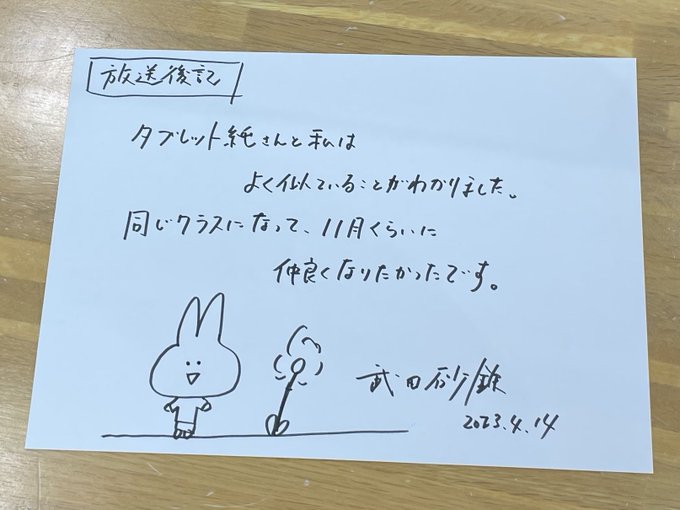 放送後記
タブレット純さんと私は
よく似ていることがわかりました。
同じクラスになって、11月くらいに
仲良くなりたかったです。
武田砂鉄
2023.4.14